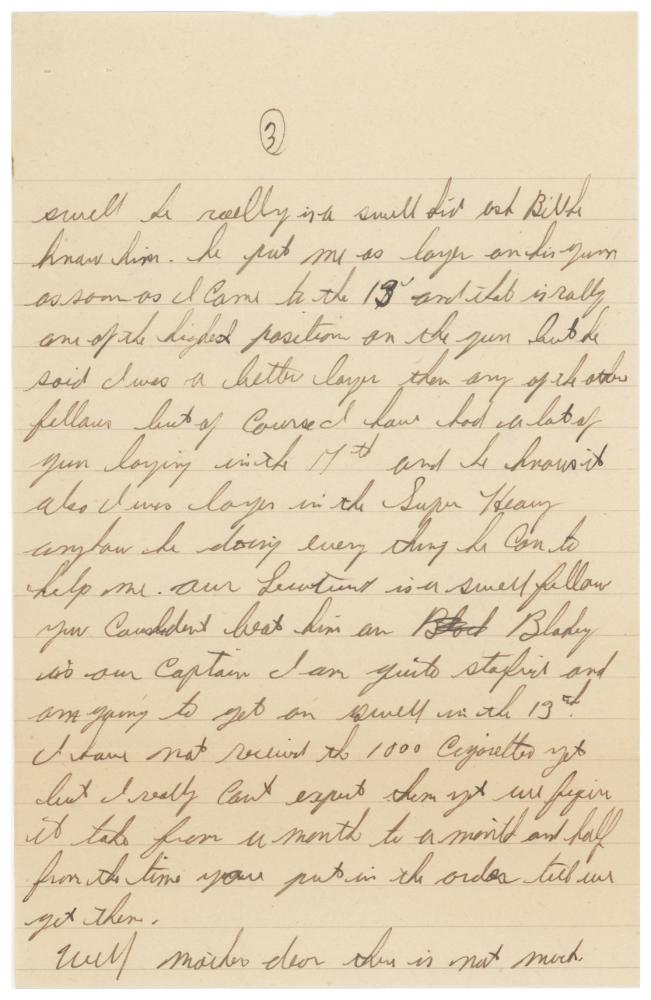 3
swell he really is a swell kid ask Bill he
know him. he put me as layer on his gun
as soon as I came to the 13 and that is rally
one of the highest position on the gun but he
said I was a better layer then any of the other
fellows but of course I have had a lot of
gun laying in the 17th and he knows it
also I was layer in the Super Heavy
anyhow he doing every thing he can to
help me. our is a swell fellow
you beat him an Blakey
is our Captain I am quite and
am going to get on swell in the 13rd.
I have not received the 1000 Cigarettes yet
but I really cant expect them yet we figure
it take from a month to a month and half
from the time you put in the order till we
get them.
Well mother dear there is not much